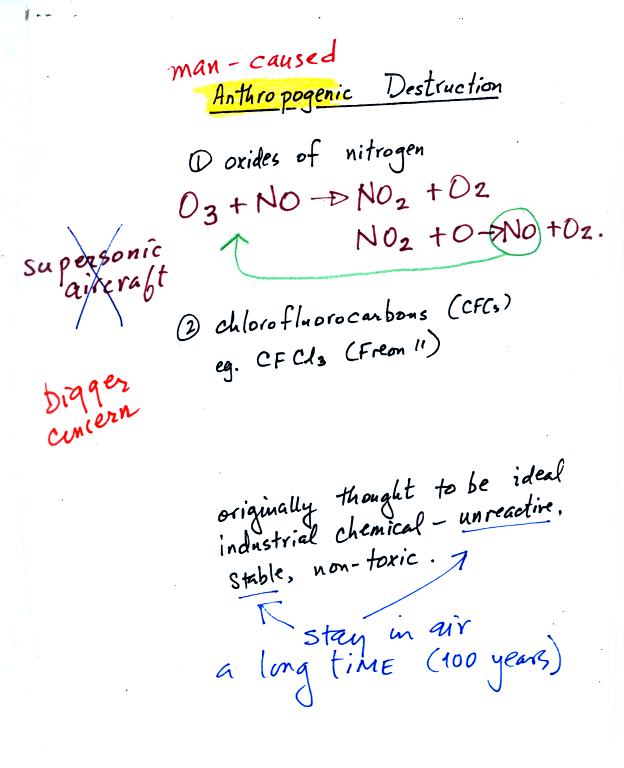 man-caused
Anthropogenic Destruction
① oxides of nitrogen
O3 + NO → NO2 + O2
NO2 + O → NO + O2.
supersonic
aircraft
② chlorofluorocarbons (CFCs)
eg. CFCl3 (Freon 11)
Bigger
concern
originally thought to be ideal
industrial chemical - unreactive,
stable, non-toxic.
stay in air
a long TIME (100 years)